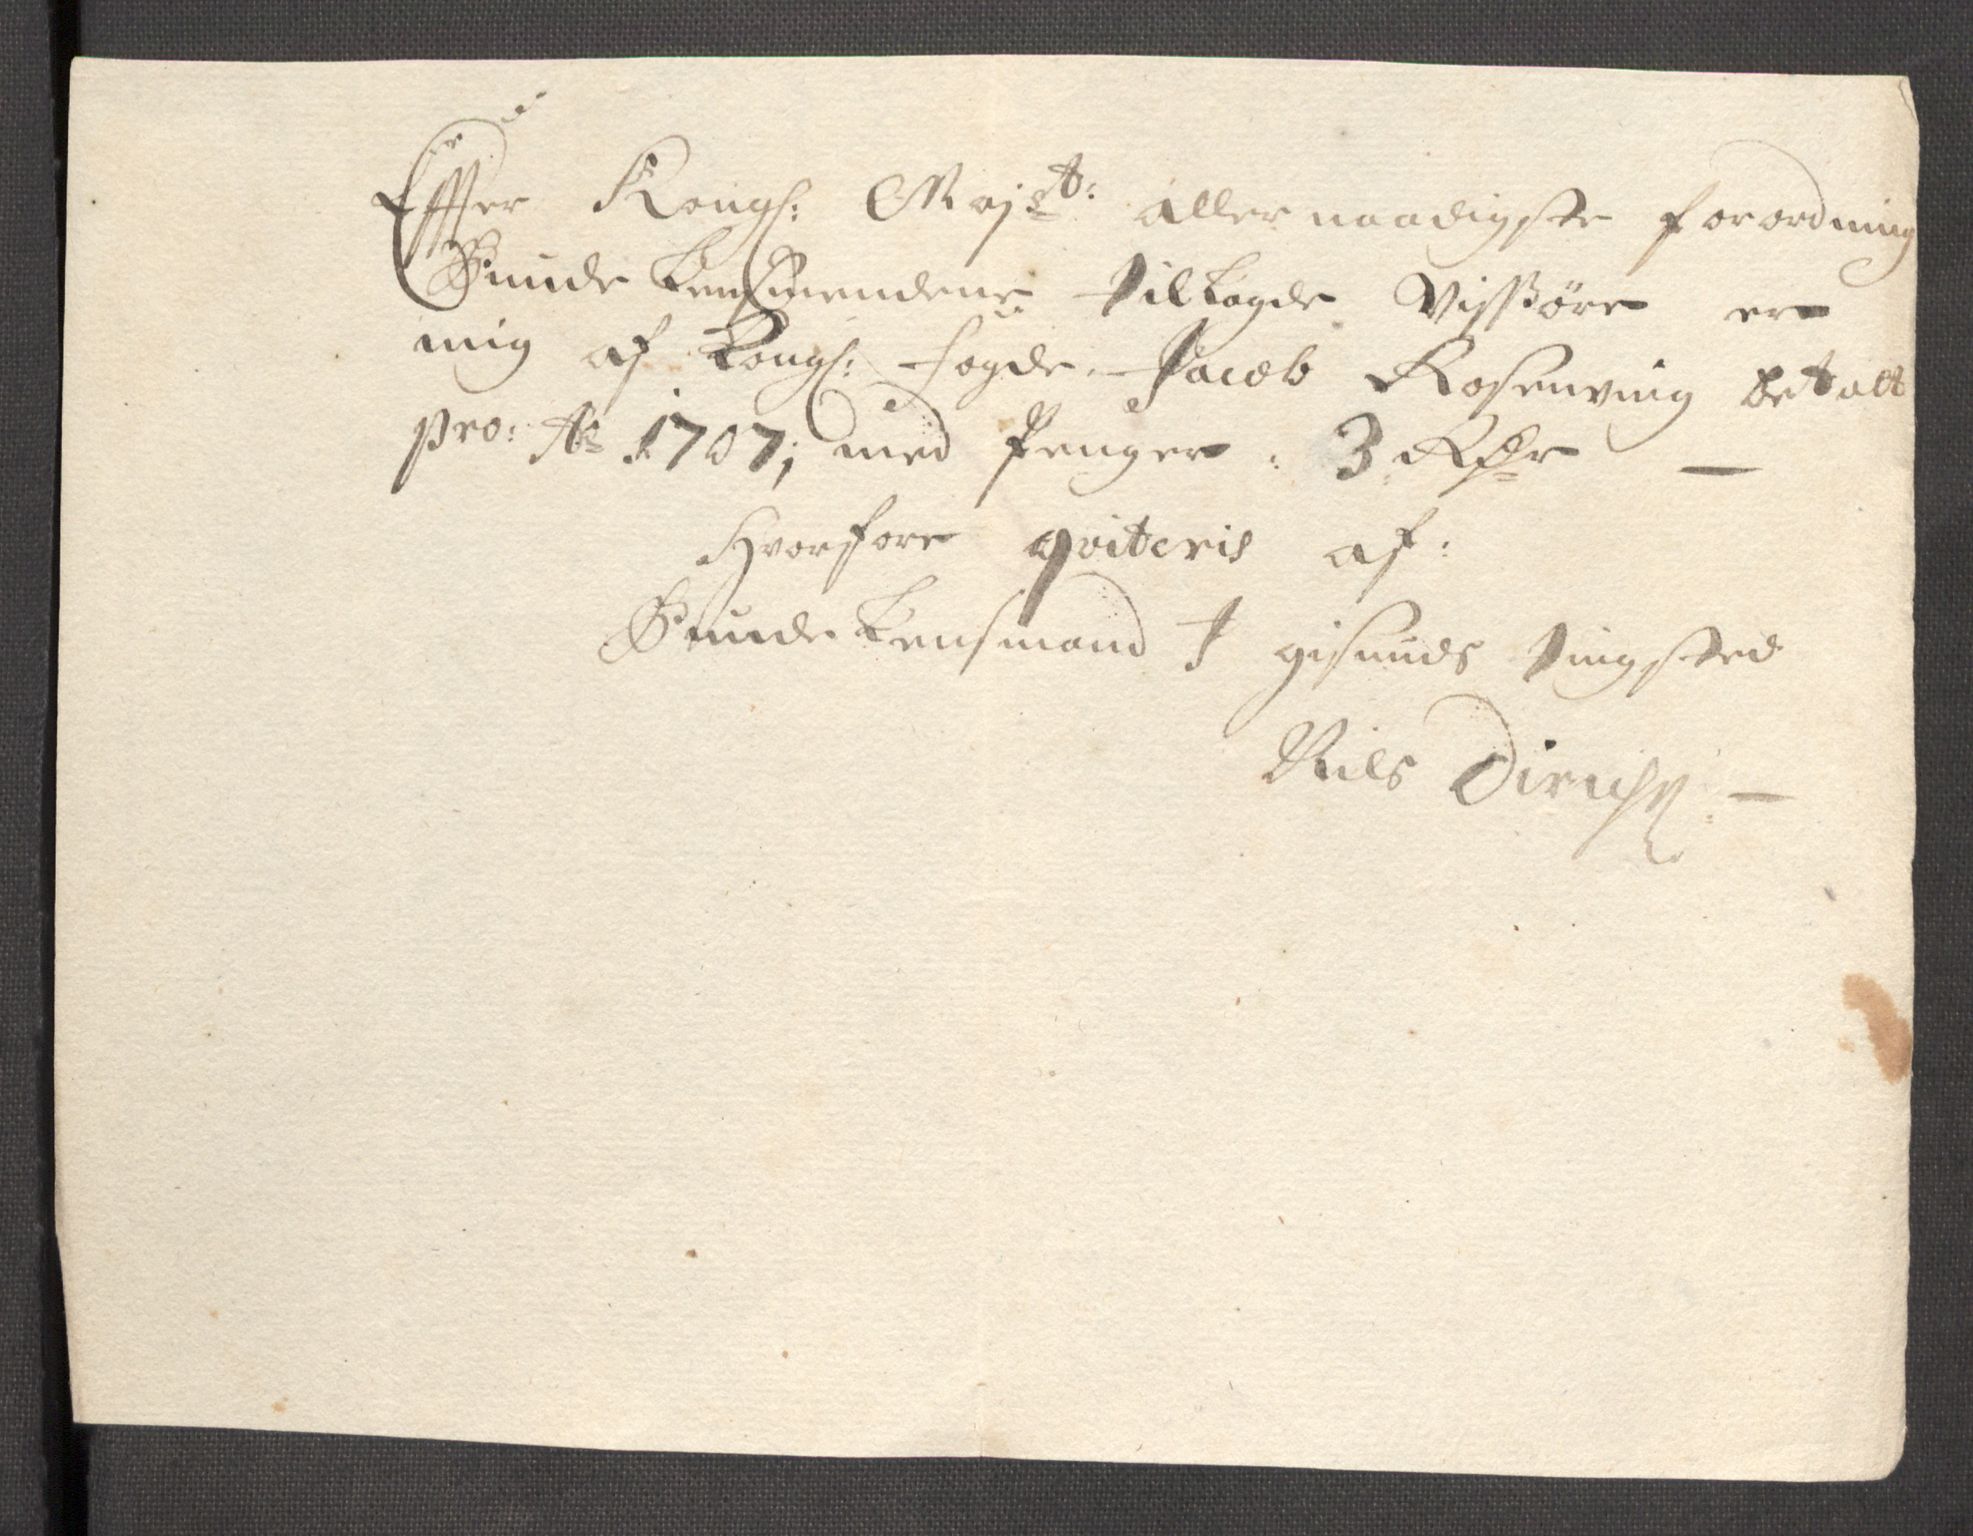 Efter Kongl: Maj:st: aller naadigste forordning
Bunde Lensmendene tillagde Vissøre er
mig af Kongl: fogde Jacob Rosenving betalt
pro: Ao 1707; med Penger: 3 Rdr —
Hvorfore qviteris af:
Bunde Lensmand I gisunds tingsted
Nils Dirichs: —